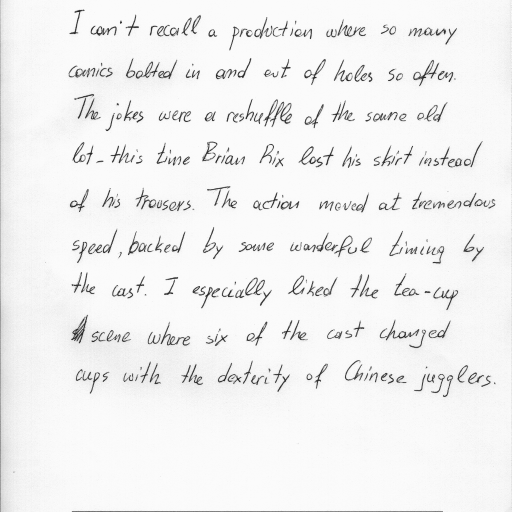 I can't recall a production where so many
comics bolted in and out of holes so often.
The jokes were a reshuffle of the same old
lot - this time Brian Rix lost his skirt instead
of his trousers. The action moved at tremendous
speed, backed by some wonderful timing by
the cast. I especially liked the tea-cup
scene where six of the cast changed
cups with the dexterity of Chinese jugglers.